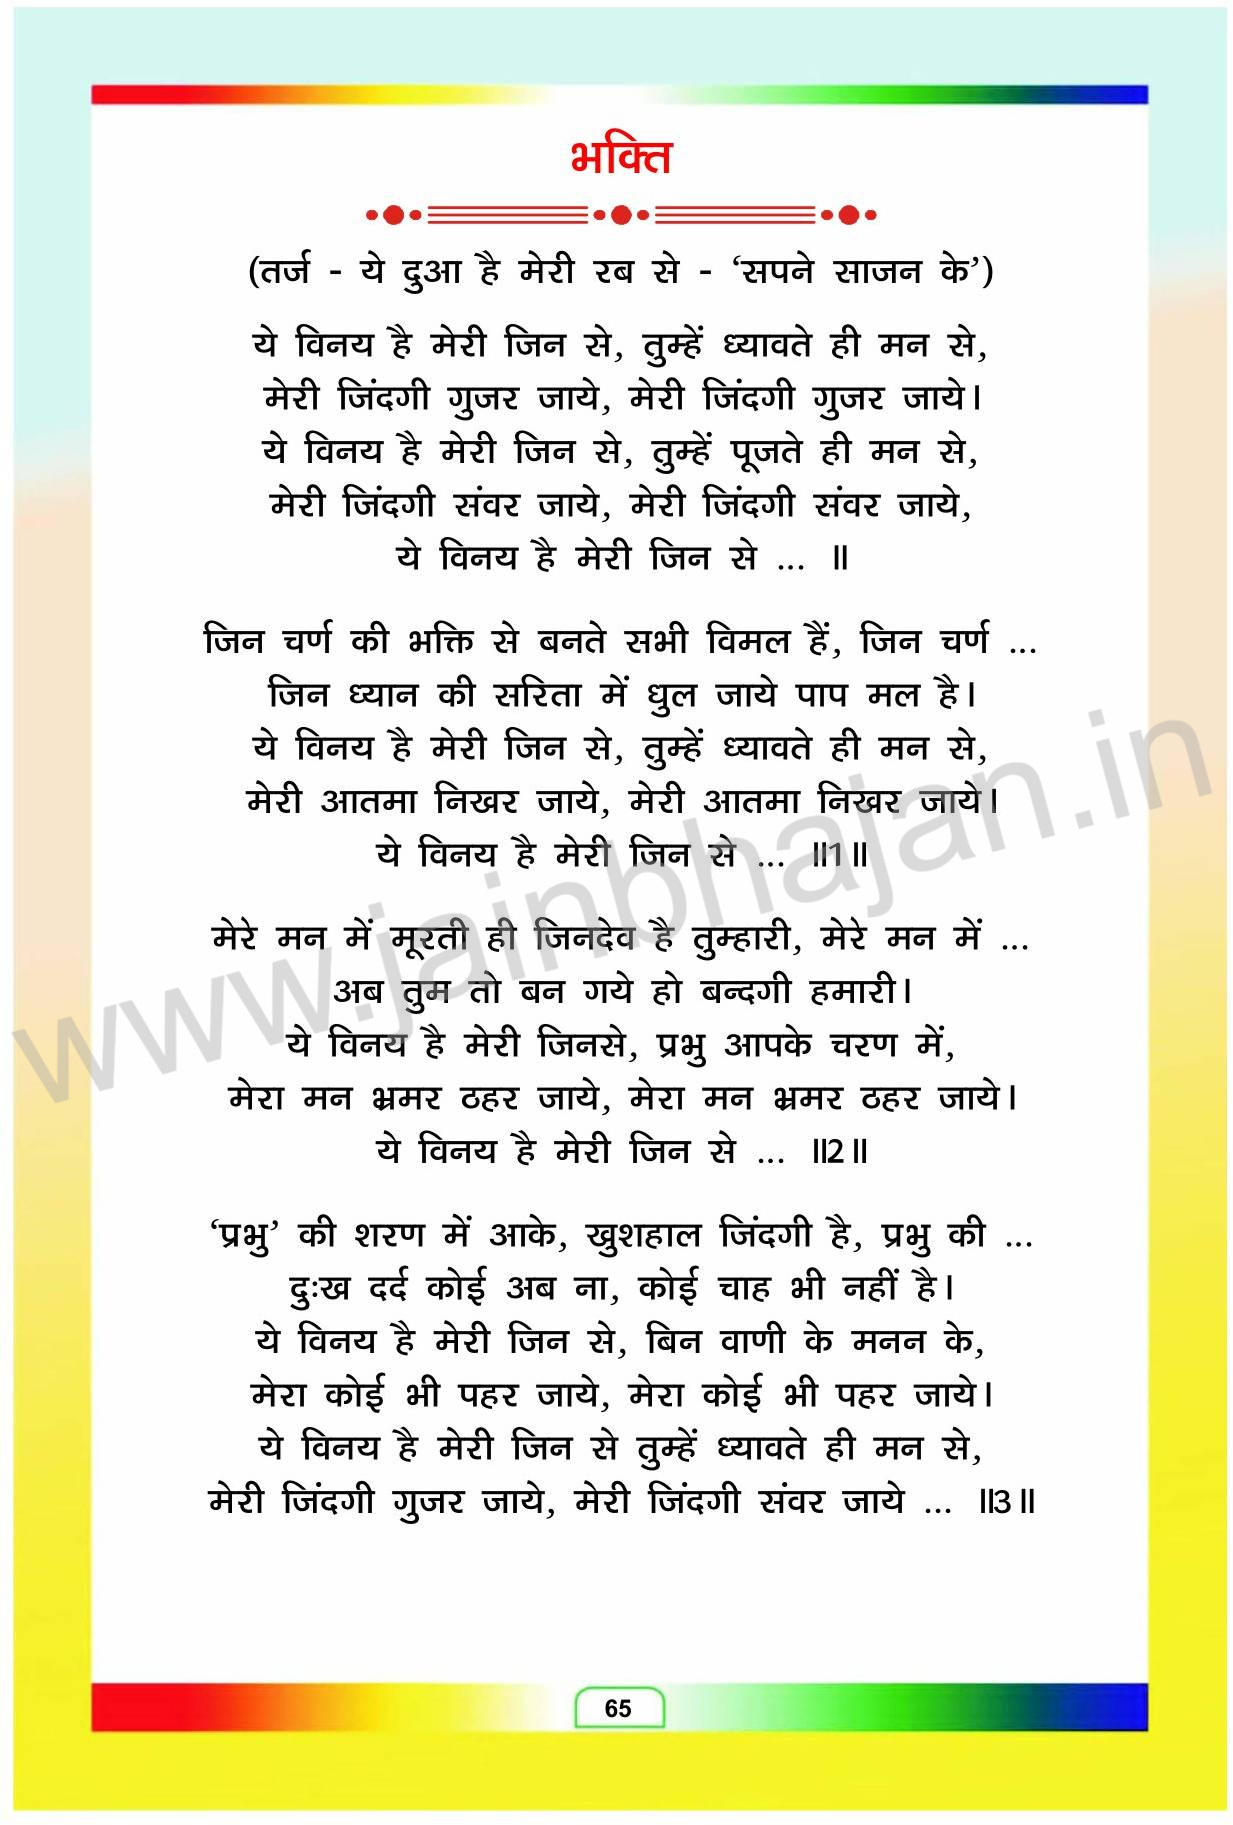 भक्ति
(तर्ज - ये दुआ है मेरी रब से - ‘सपने साजन के’)
ये विनय है मेरी जिन से, तुम्हें ध्यावते ही मन से,
मेरी जिंदगी गुजर जाये, मेरी जिंदगी गुजर जाये।
ये विनय है मेरी जिन से, तुम्हें पूजते ही मन से,
मेरी जिंदगी संवर जाये, मेरी जिंदगी संवर जाये,
ये विनय है मेरी जिन से ... ॥
जिन चर्ण की भक्ति से बनते सभी विमल हैं, जिन चर्ण ...
जिन ध्यान की सरिता में धुल जाये पाप मल है।
ये विनय है मेरी जिन से, तुम्हें ध्यावते ही मन से,
मेरी आतमा निखर जाये, मेरी आतमा निखर जाये।
ये विनय है मेरी जिन से ... ॥1॥
मेरे मन में मूरती ही जिनदेव है तुम्हारी, मेरे मन में ...
अब तुम तो बन गये हो बन्दगी हमारी।
ये विनय है मेरी जिनसे, प्रभु आपके चरण में,
मेरा मन भ्रमर ठहर जाये, मेरा मन भ्रमर ठहर जाये।
ये विनय है मेरी जिन से ... ॥2॥
‘प्रभु’ की शरण में आके, खुशहाल जिंदगी है, प्रभु की ...
दुःख दर्द कोई अब ना, कोई चाह भी नहीं है।
ये विनय है मेरी जिन से, बिन वाणी के मनन के,
मेरा कोई भी पहर जाये, मेरा कोई भी पहर जाये।
ये विनय है मेरी जिन से तुम्हें ध्यावते ही मन से,
मेरी जिंदगी गुजर जाये, मेरी जिंदगी संवर जाये ... ॥3॥
www.jainbhajan.in
65